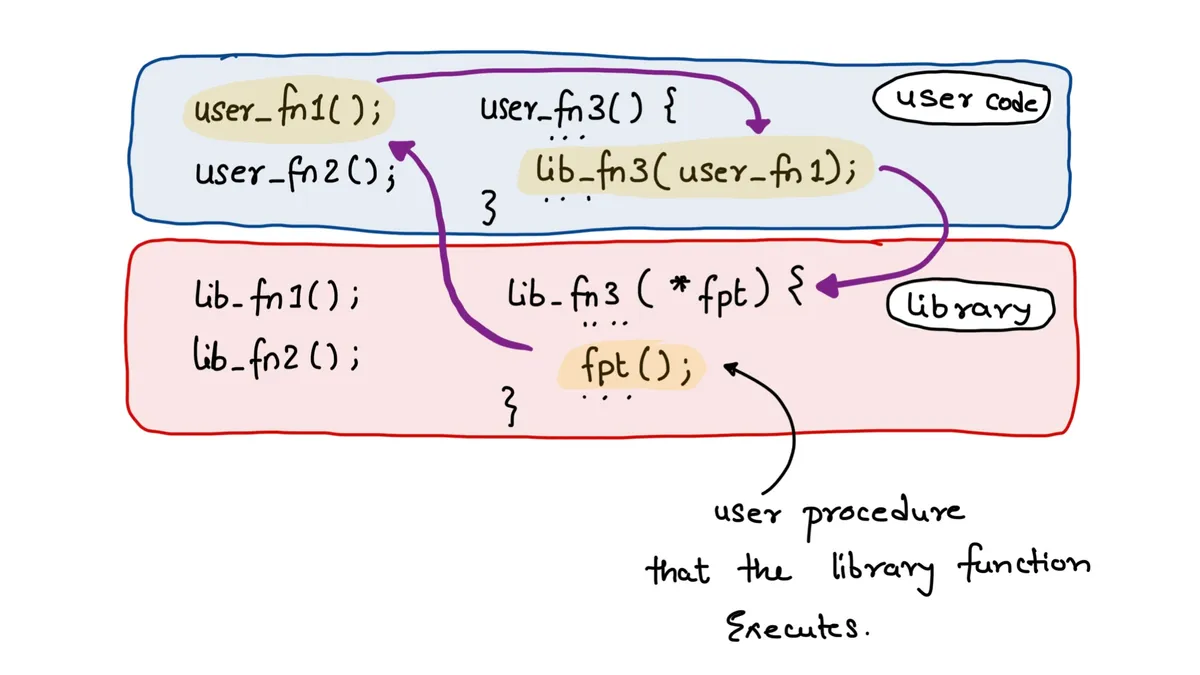 user_fn1();
user_fn2();
user_fn3() {
...
lib_fn3(user_fn1);
...
}
user code
lib_fn1();
lib_fn2();
lib_fn3 (*fpt) {
....
fpt();
...
}
library
user procedure
that the library function
Executes.